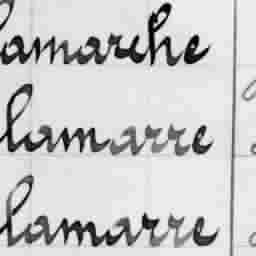 lamarche
lamarre
lamarre